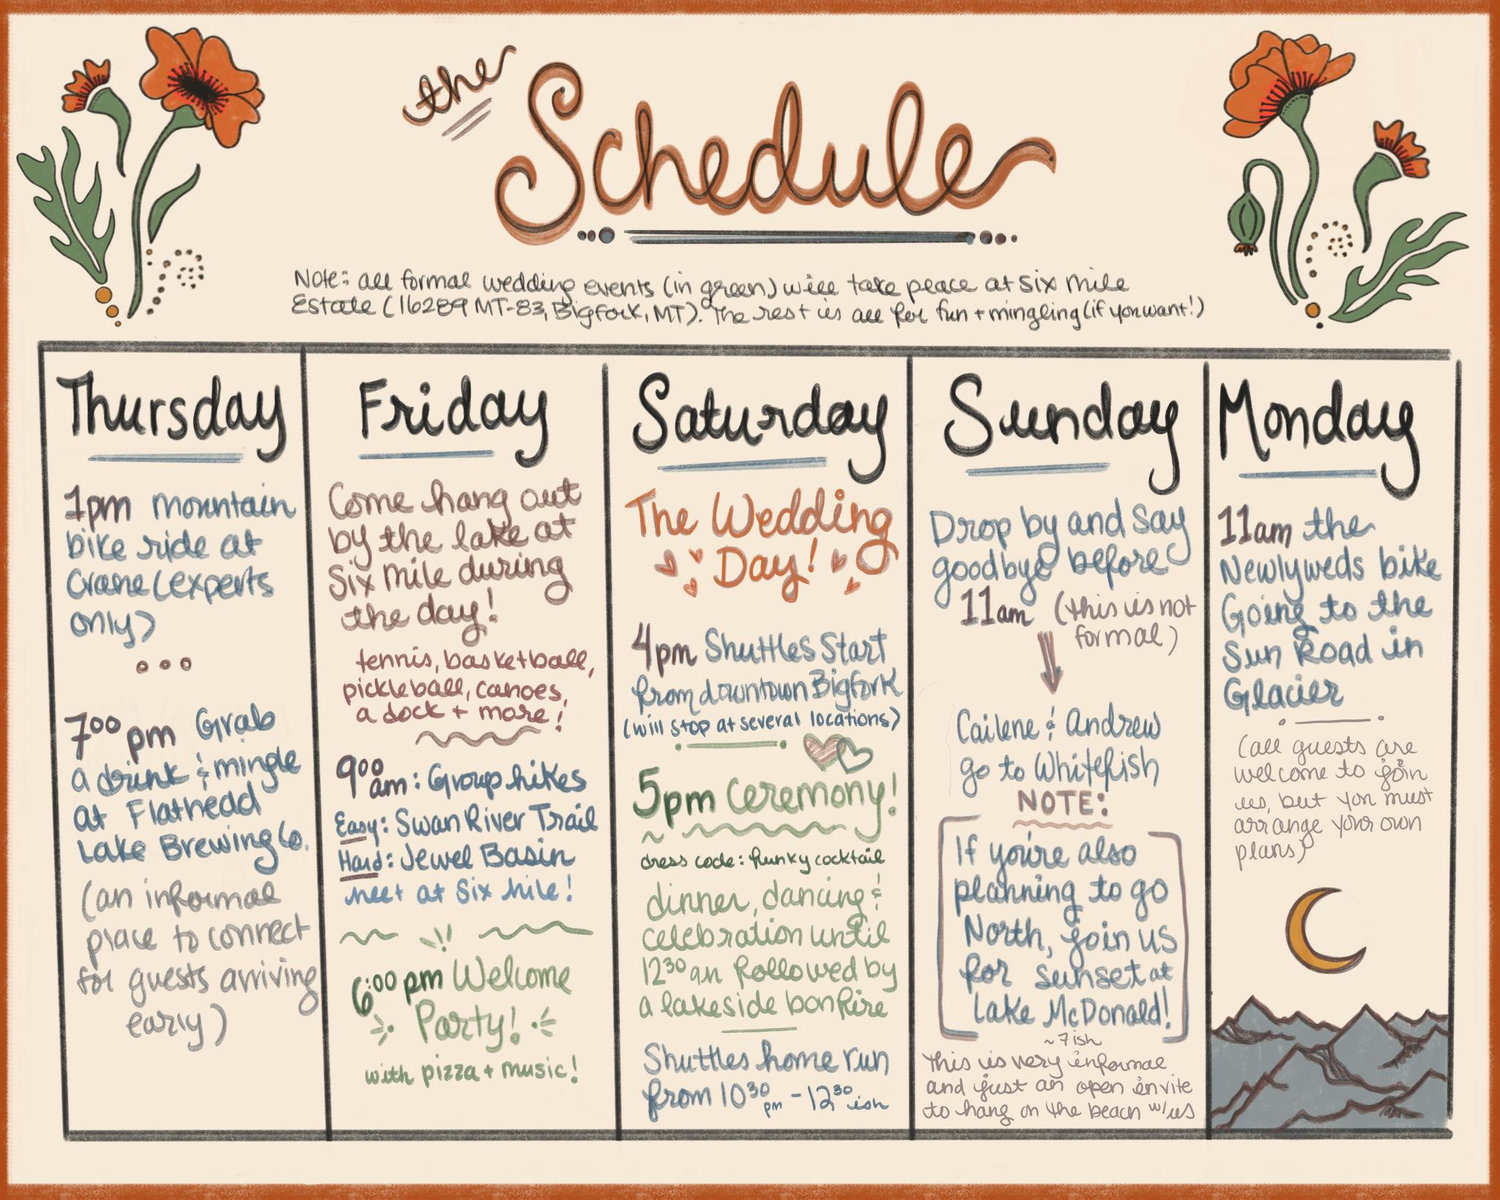 the
Schedule
Note: all formal wedding events (in green) will take peace at Six Mile
Estate (16289 MT-83, Bigfork, MT). The rest is all for fun + mingling (if you want!)
Thursday
1pm mountain
bike ride at
Crane (experts
only)
7:00 pm Grab
a drink & mingle
at Flathead
Lake Brewing Co.
(an informal
place to connect
for guests arriving
early)
Friday
Come hang out
by the lake at
Six Mile during
the day!
tennis, basketball,
pickleball, canoes,
a dock + more!
9:00 am: Group hikes
Easy: Swan River Trail
Hard: Jewel Basin
meet at Six Mile!
6:00 pm Welcome
Party!
with pizza + music!
Saturday
The Wedding
Day!
4pm Shuttles Start
from downtown Bigfork
(will stop at several locations)
5pm Ceremony!
dress code: funky cocktail
dinner, dancing &
celebration until
12:30 am followed by
a lakeside bonfire
Shuttles home run
from 10:30 pm - 12:30 ish
Sunday
Drop by and say
goodbye before
11am (this is not
formal)
Cailene & Andrew
go to Whitefish
NOTE:
If you're also
planning to go
North, join us
for sunset at
Lake McDonald!
~7ish
This is very informal
and just an open invite
to hang on the beach w/us
Monday
11am the
Newlyweds bike
Going to the
Sun Road in
Glacier
(all guests are
welcome to join
us, but you must
arrange your own
plans)